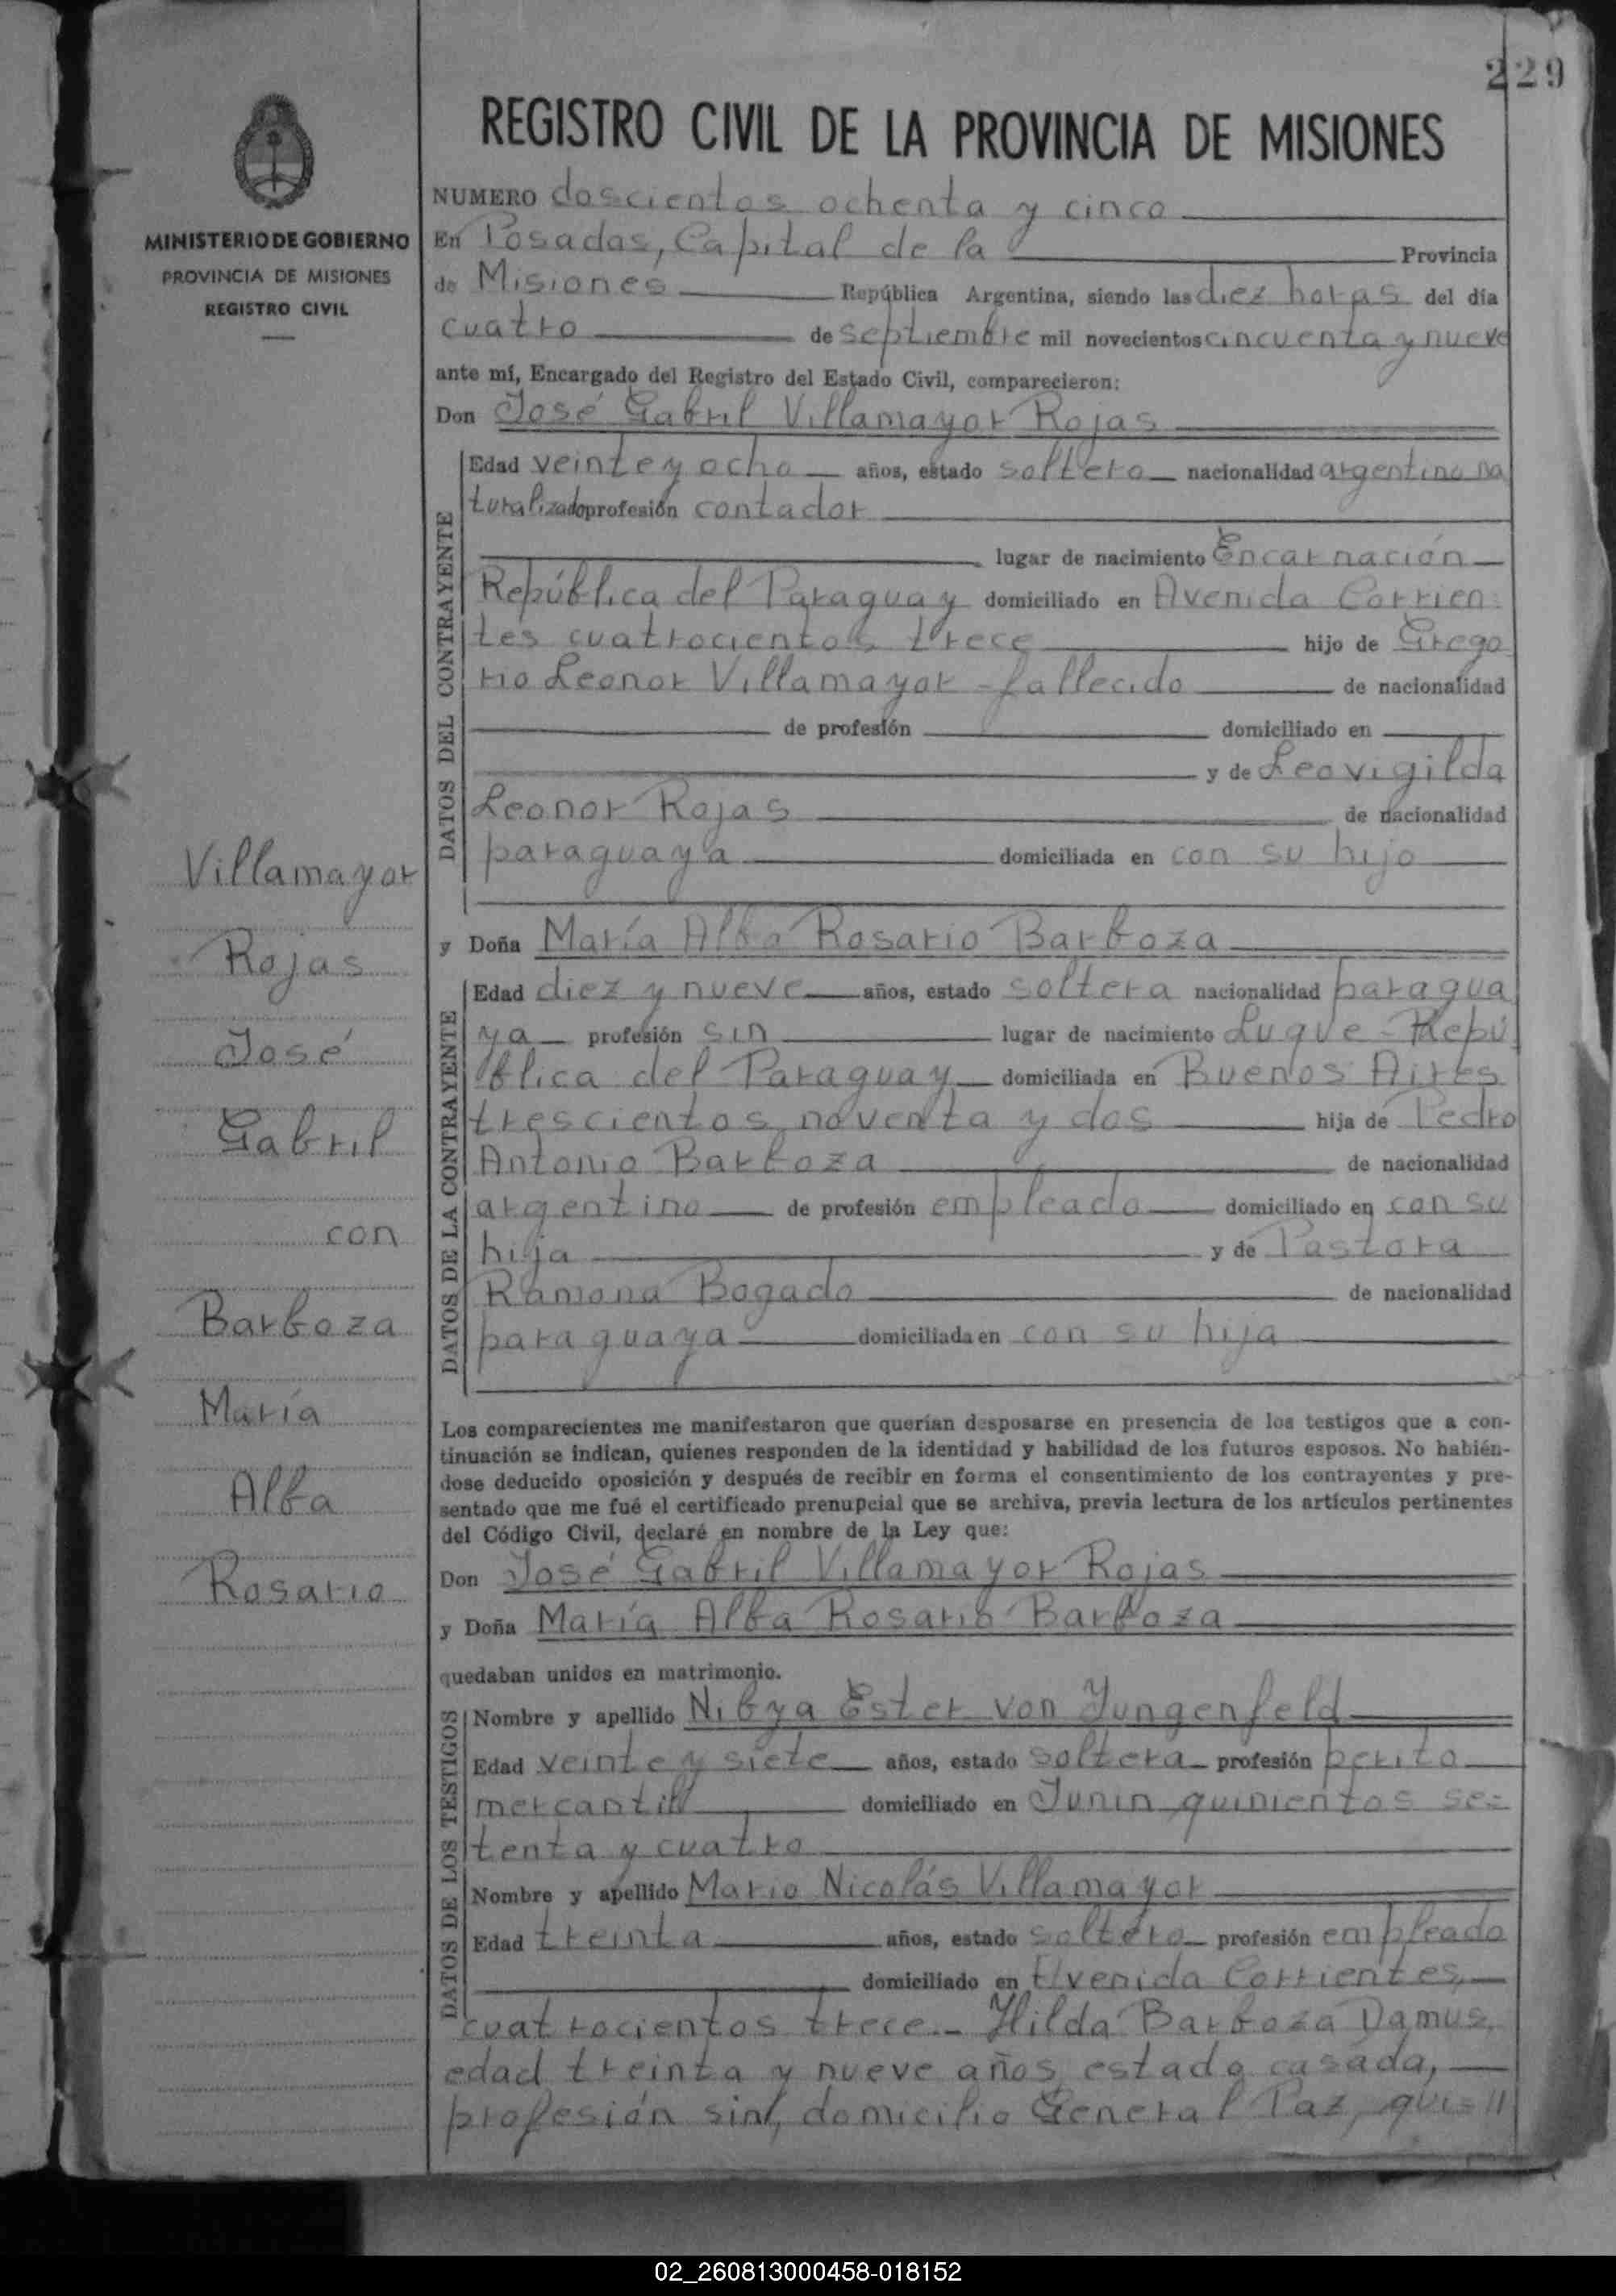 229
REGISTRO CIVIL DE LA PROVINCIA DE MISIONES
MINISTERIO DE GOBIERNO
PROVINCIA DE MISIONES
REGISTRO CIVIL
NUMERO doscientos ochenta y cinco
En Posadas, Capital de la Provincia
de Misiones República Argentina, siendo las diez horas del día
cuatro de septiembre mil novecientos cincuenta y nueve
ante mí, Encargado del Registro del Estado Civil, comparecieron:
Don José Gabril Villamayor Rojas
DATOS DEL CONTRAYENTE
Edad veinte y ocho años, estado soltero nacionalidad argentino na
turalizado profesión contador
lugar de nacimiento Encarnación
República del Paraguay domiciliado en Avenida Corrien
tes cuatrocientos trece hijo de Grego
rio Leonor Villamayor - fallecido de nacionalidad
de profesión domiciliado en
y de Leovigilda
Leonor Rojas de nacionalidad
paraguaya domiciliada en con su hijo
y Doña María Alba Rosario Barboza
DATOS DE LA CONTRAYENTE
Edad diez y nueve años, estado soltera nacionalidad paragua
ya profesión sin lugar de nacimiento Luque - Repú
blica del Paraguay domiciliada en Buenos Aires
trescientos noventa y dos hija de Pedro
Antonio Barboza de nacionalidad
argentino de profesión empleado domiciliado en con su
hija y de Pastora
Ramona Bogado de nacionalidad
paraguaya domiciliada en con su hija
Los comparecientes me manifestaron que querían desposarse en presencia de los testigos que a con-
tinuación se indican, quienes responden de la identidad y habilidad de los futuros esposos. No habién-
dose deducido oposición y después de recibir en forma el consentimiento de los contrayentes y pre-
sentado que me fué el certificado prenupcial que se archiva, previa lectura de los artículos pertinentes
del Código Civil, declaré en nombre de la Ley que:
Don José Gabril Villamayor Rojas
y Doña María Alba Rosario Barboza
quedaban unidos en matrimonio.
DATOS DE LOS TESTIGOS
Nombre y apellido Nibya Ester von Jungenfeld
Edad veinte y siete años, estado soltera profesión perito
mercantil domiciliado en Junin quinientos se=
tenta y cuatro
Nombre y apellido Mario Nicolás Villamayor
Edad treinta años, estado soltero profesión empleado
domiciliado en Avenida Corrientes,
cuatrocientos trece.- Hilda Barboza Damus,
edad treinta y nueve años, estado casada,
profesión sin, domicilio General Paz, qui=//
Villamayor
Rojas
José
Gabril
con
Barboza
María
Alba
Rosario
02_260813000458-018152